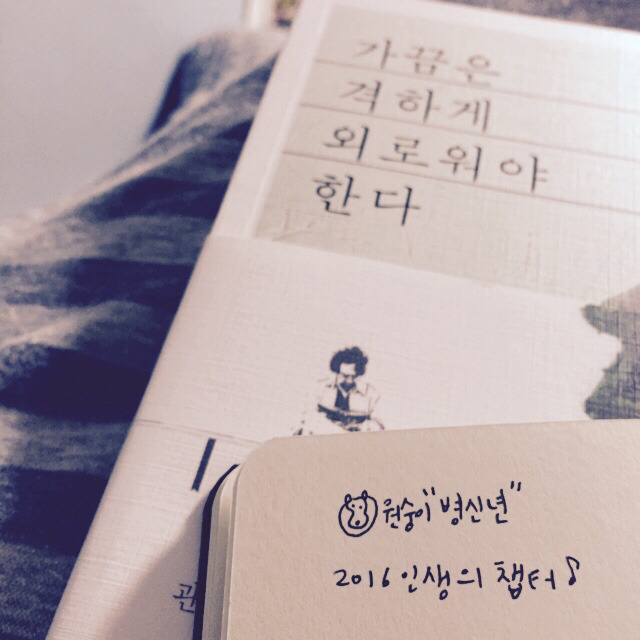 가끔은
격하게
외로워야
한다
원숭이 "병신년"
2016 인생의 챕터 8